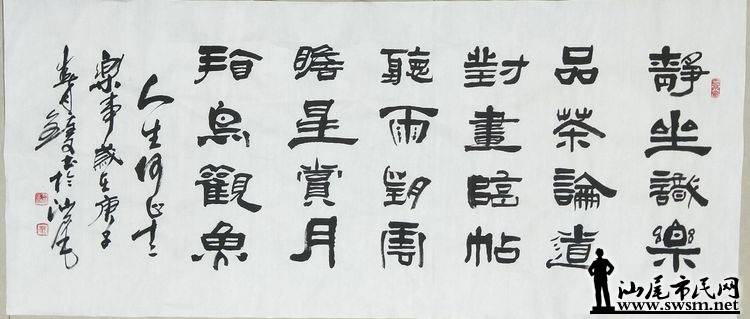 靜坐識樂
品茶論道
對畫臨帖
聽雨望雲
瞻星賞月
指鳥觀魚
人生何止十二
樂事歲在庚子
書於汕尾
汕尾市民网
www.swsm.net